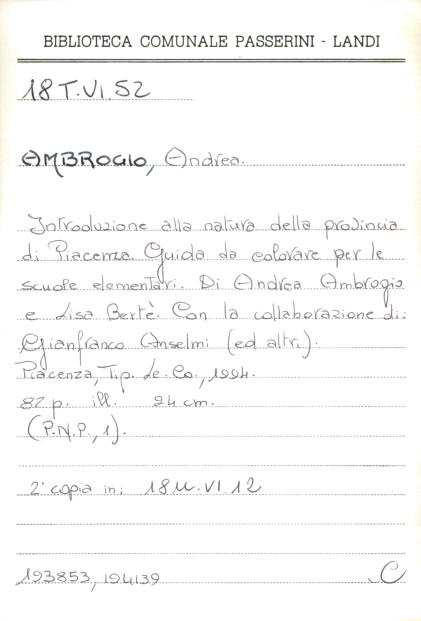 BIBLIOTECA COMUNALE PASSERINI - LANDI
18 T.VI.52
AMBROGIO, Andrea.
Introduzione alla natura della provincia
di Piacenza. Guida da colorare per le
scuole elementari. Di Andrea Ambrogio
e Lisa Bertè. Con la collaborazione di:
Gianfranco Anselmi (ed altri).
Piacenza, Tip. Le. Co., 1994.
82 p. ill. 24 cm.
(P.N.P., 1).
2ª copia in: 18 U.VI.12
193853, 194139 C